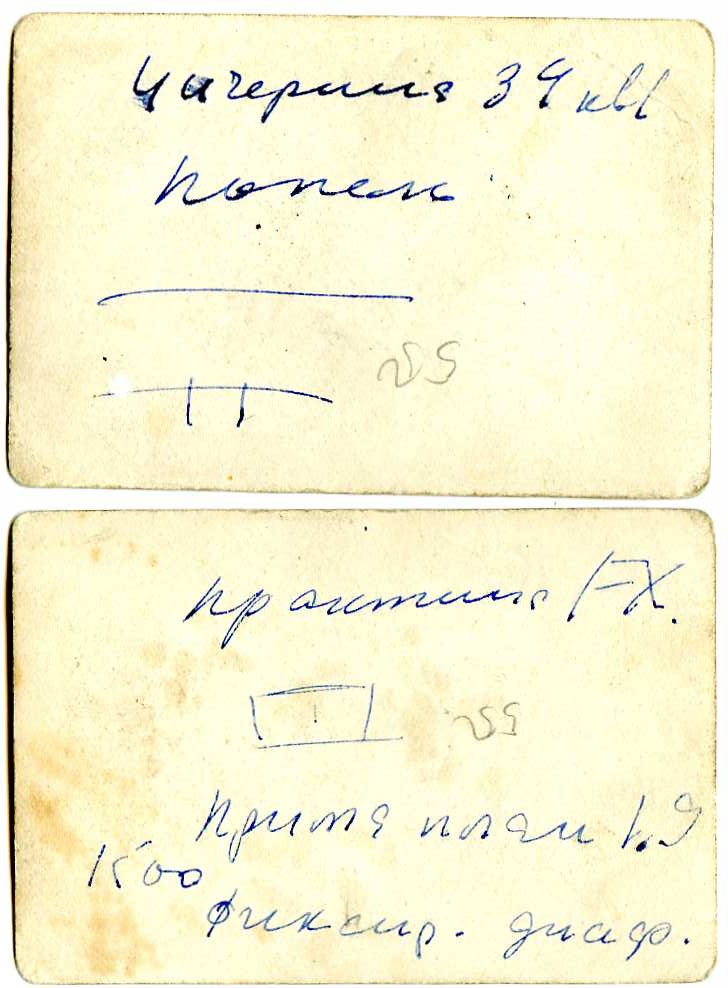 Чичерина 34 кв 1
Попель
практина FX.
Примо план 1.9
1500
фиксир. диаф.